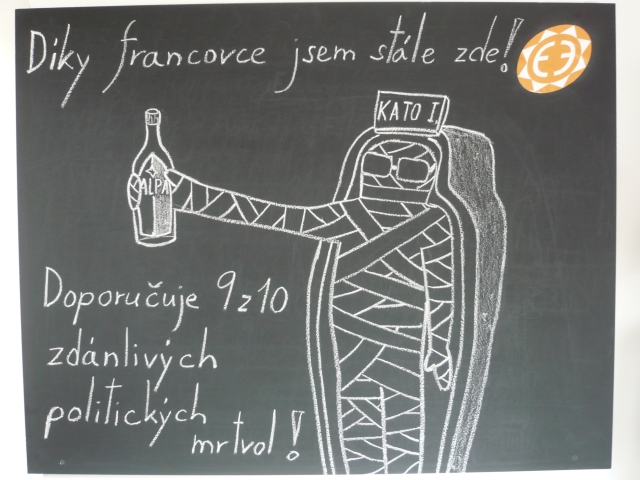 Díky francovce jsem stále zde!
KATO I.
ALPA
Doporučuje 9 z 10
zdánlivých
politických
mrtvol!